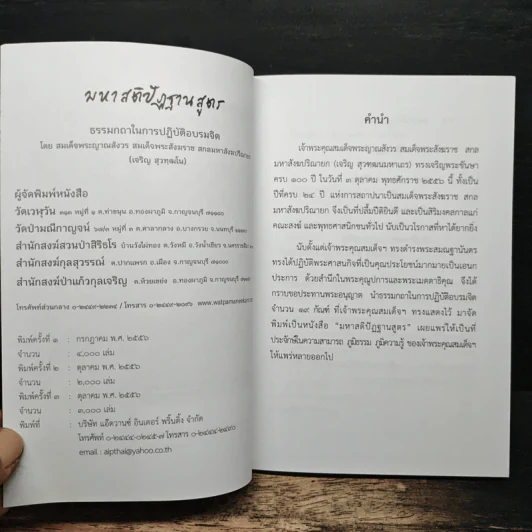 มหาสติปัฏฐานสูตร
ธรรมกถาในการปฏิบัติอบรมจิต
โดย สมเด็จพระญาณสังวร สมเด็จพระสังฆราช สกลมหาสังฆปริณายก
(เจริญ สุวฑฺฒโน)
ผู้จัดพิมพ์หนังสือ
วัดเวฬุวัน ๓๑๓ หมู่ที่ ๑ ต.ท่าขนุน อ.ทองผาภูมิ จ.กาญจนบุรี ๗๑๑๘๐
วัดป่ามณีกาญจน์ หมู่ที่ ๓ ต.ศาลากลาง อ.บางกรวย จ.นนทบุรี
สำนักสงฆ์สวนป่าสิริธโร บ้านวังไผ่ทอง ต.วังหมี อ.วังน้ำเขียว
สำนักสงฆ์กุลสุวรรณ์ ต.ปากแพรก อ.เมือง จ.กาญจนบุรี ๗๑๐๐๐
สำนักสงฆ์ป่าแก้วกุลเจริญ ต.ห้วยเขย่ง อ.ทองผาภูมิ จ.กาญจนบุรี
โทรศัพท์ส่วนกลาง / โทรสาร
พิมพ์ครั้งที่ ๑ : กรกฎาคม พ.ศ. ๒๕๕๖
จำนวน : ๔,๐๐๐ เล่ม
พิมพ์ครั้งที่ ๒ : ตุลาคม พ.ศ. ๒๕๕๖
จำนวน : ๒,๐๐๐ เล่ม
พิมพ์ครั้งที่ ๓ : ตุลาคม พ.ศ. ๒๕๕๖
จำนวน : ๓,๐๐๐ เล่ม
พิมพ์ที่ : บริษัท แอ๊ดวานซ์ อินเตอร์ พริ้นติ้ง จำกัด
โทรศัพท์ ๐-๒๔๔๔-๐๒๔๕-๗ โทรสาร
email : aipthai@yahoo.co.th
คำนำ
เจ้าพระคุณสมเด็จพระญาณสังวร สมเด็จพระสังฆราช สกล
มหาสังฆปริณายก (เจริญ สุวฑฺฒนมหาเถร) ทรงเจริญพระชันษา
ครบ ๑๐๐ ปี ในวันที่ ๓ ตุลาคม พุทธศักราช ๒๕๕๖ นี้ ทั้งเป็น
ปีที่ครบ ๒๔ ปี แห่งการสถาปนาเป็นสมเด็จพระสังฆราช สกล
มหาสังฆปริณายก จึงเป็นที่ปลื้มปีติยินดี และเป็นสิริมงคลกาลแก่
คณะสงฆ์ และพุทธศาสนิกชนทั่วไป นับเป็นวโรกาสที่หาได้ยากยิ่ง
นับตั้งแต่เจ้าพระคุณสมเด็จฯ ทรงดำรงพระสมณฐานันดร
ทรงได้ปฏิบัติพระศาสนกิจที่เป็นคุณประโยชน์มากมายเป็นเอนก
ประการ ด้วยสำนึกในพระคุณูปการและพระเมตตาธิคุณ จึงได้
กราบขอประทานพระอนุญาต นำธรรมกถาในการปฏิบัติอบรมจิต
จำนวน ๑๙ กัณฑ์ ที่เจ้าพระคุณสมเด็จฯ ทรงแสดงไว้ มาจัด
พิมพ์เป็นหนังสือ "มหาสติปัฏฐานสูตร" เผยแพร่ให้เป็นที่
ประจักษ์ในความสามารถ ภูมิธรรม ภูมิความรู้ ของเจ้าพระคุณสมเด็จฯ
ให้แพร่หลายออกไป